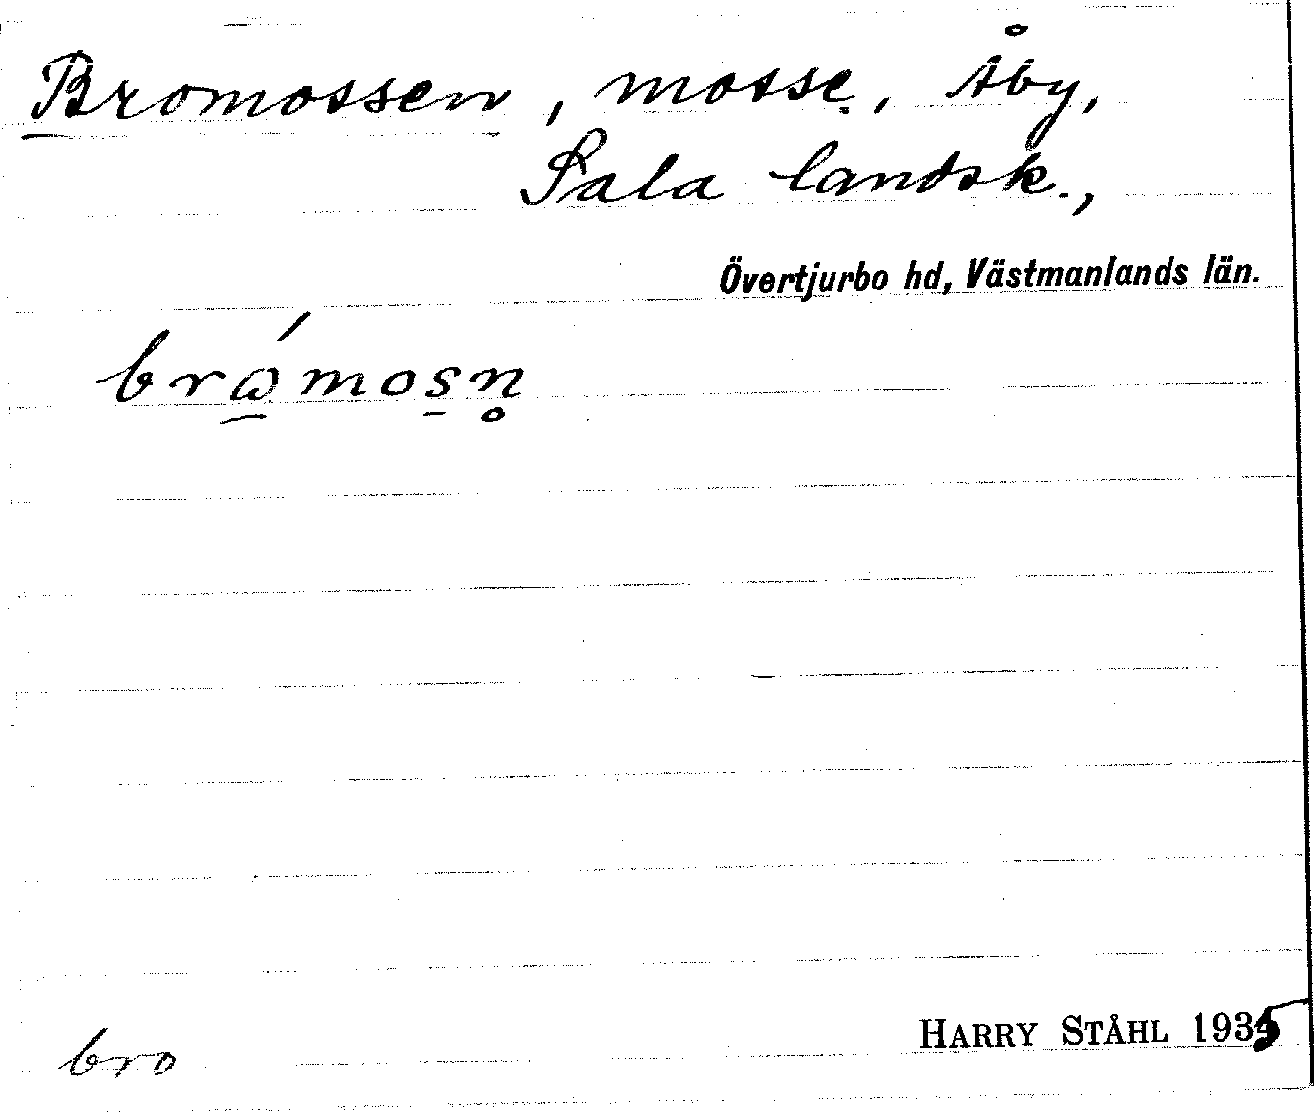 Bromossen, mosse, Åby,
Sala landsk.,
Övertjurbo hd, Västmanlands län.
brώ̱mos̱n̥
bro
HARRY STÅHL 1935